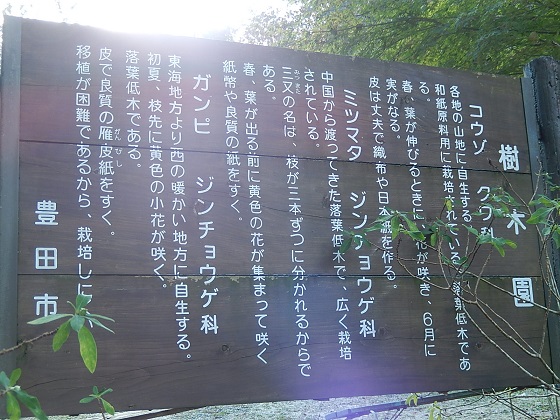 樹木園
コウゾ クワ科
各地の山地に自生する
和紙原料用に栽培されている落葉低木であ
る。
春、葉が伸びるときに 花が咲き、6月に
実がなる。
皮は丈夫で織布や日本紙を作る。
ミツマタ ジンチョウゲ科
中国から渡ってきた落葉低木で、広く栽培
されている。
三又の名は、枝が三本ずつに分かれるからで
みつまた
ある。
春、葉が出る前に黄色の花が集まって咲く
紙幣や良質の紙をすく。
ガンピ ジンチョウゲ科
東海地方より西の暖かい地方に自生する。
初夏、枝先に黄色の小花が咲く。
落葉低木である。
皮で良質の雁皮紙をすく。
がんぴし
移植が困難であるから、栽培しに
豊田市